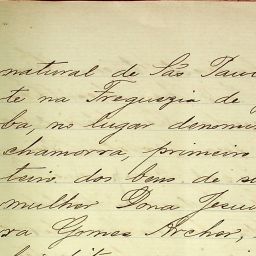 natural de São Paul
te na Freguezia de
ba, no lugar denomi
chamorra, primeiro
teiro dos bens de s
mulher Dona Jesui
ra Gomes Archer,